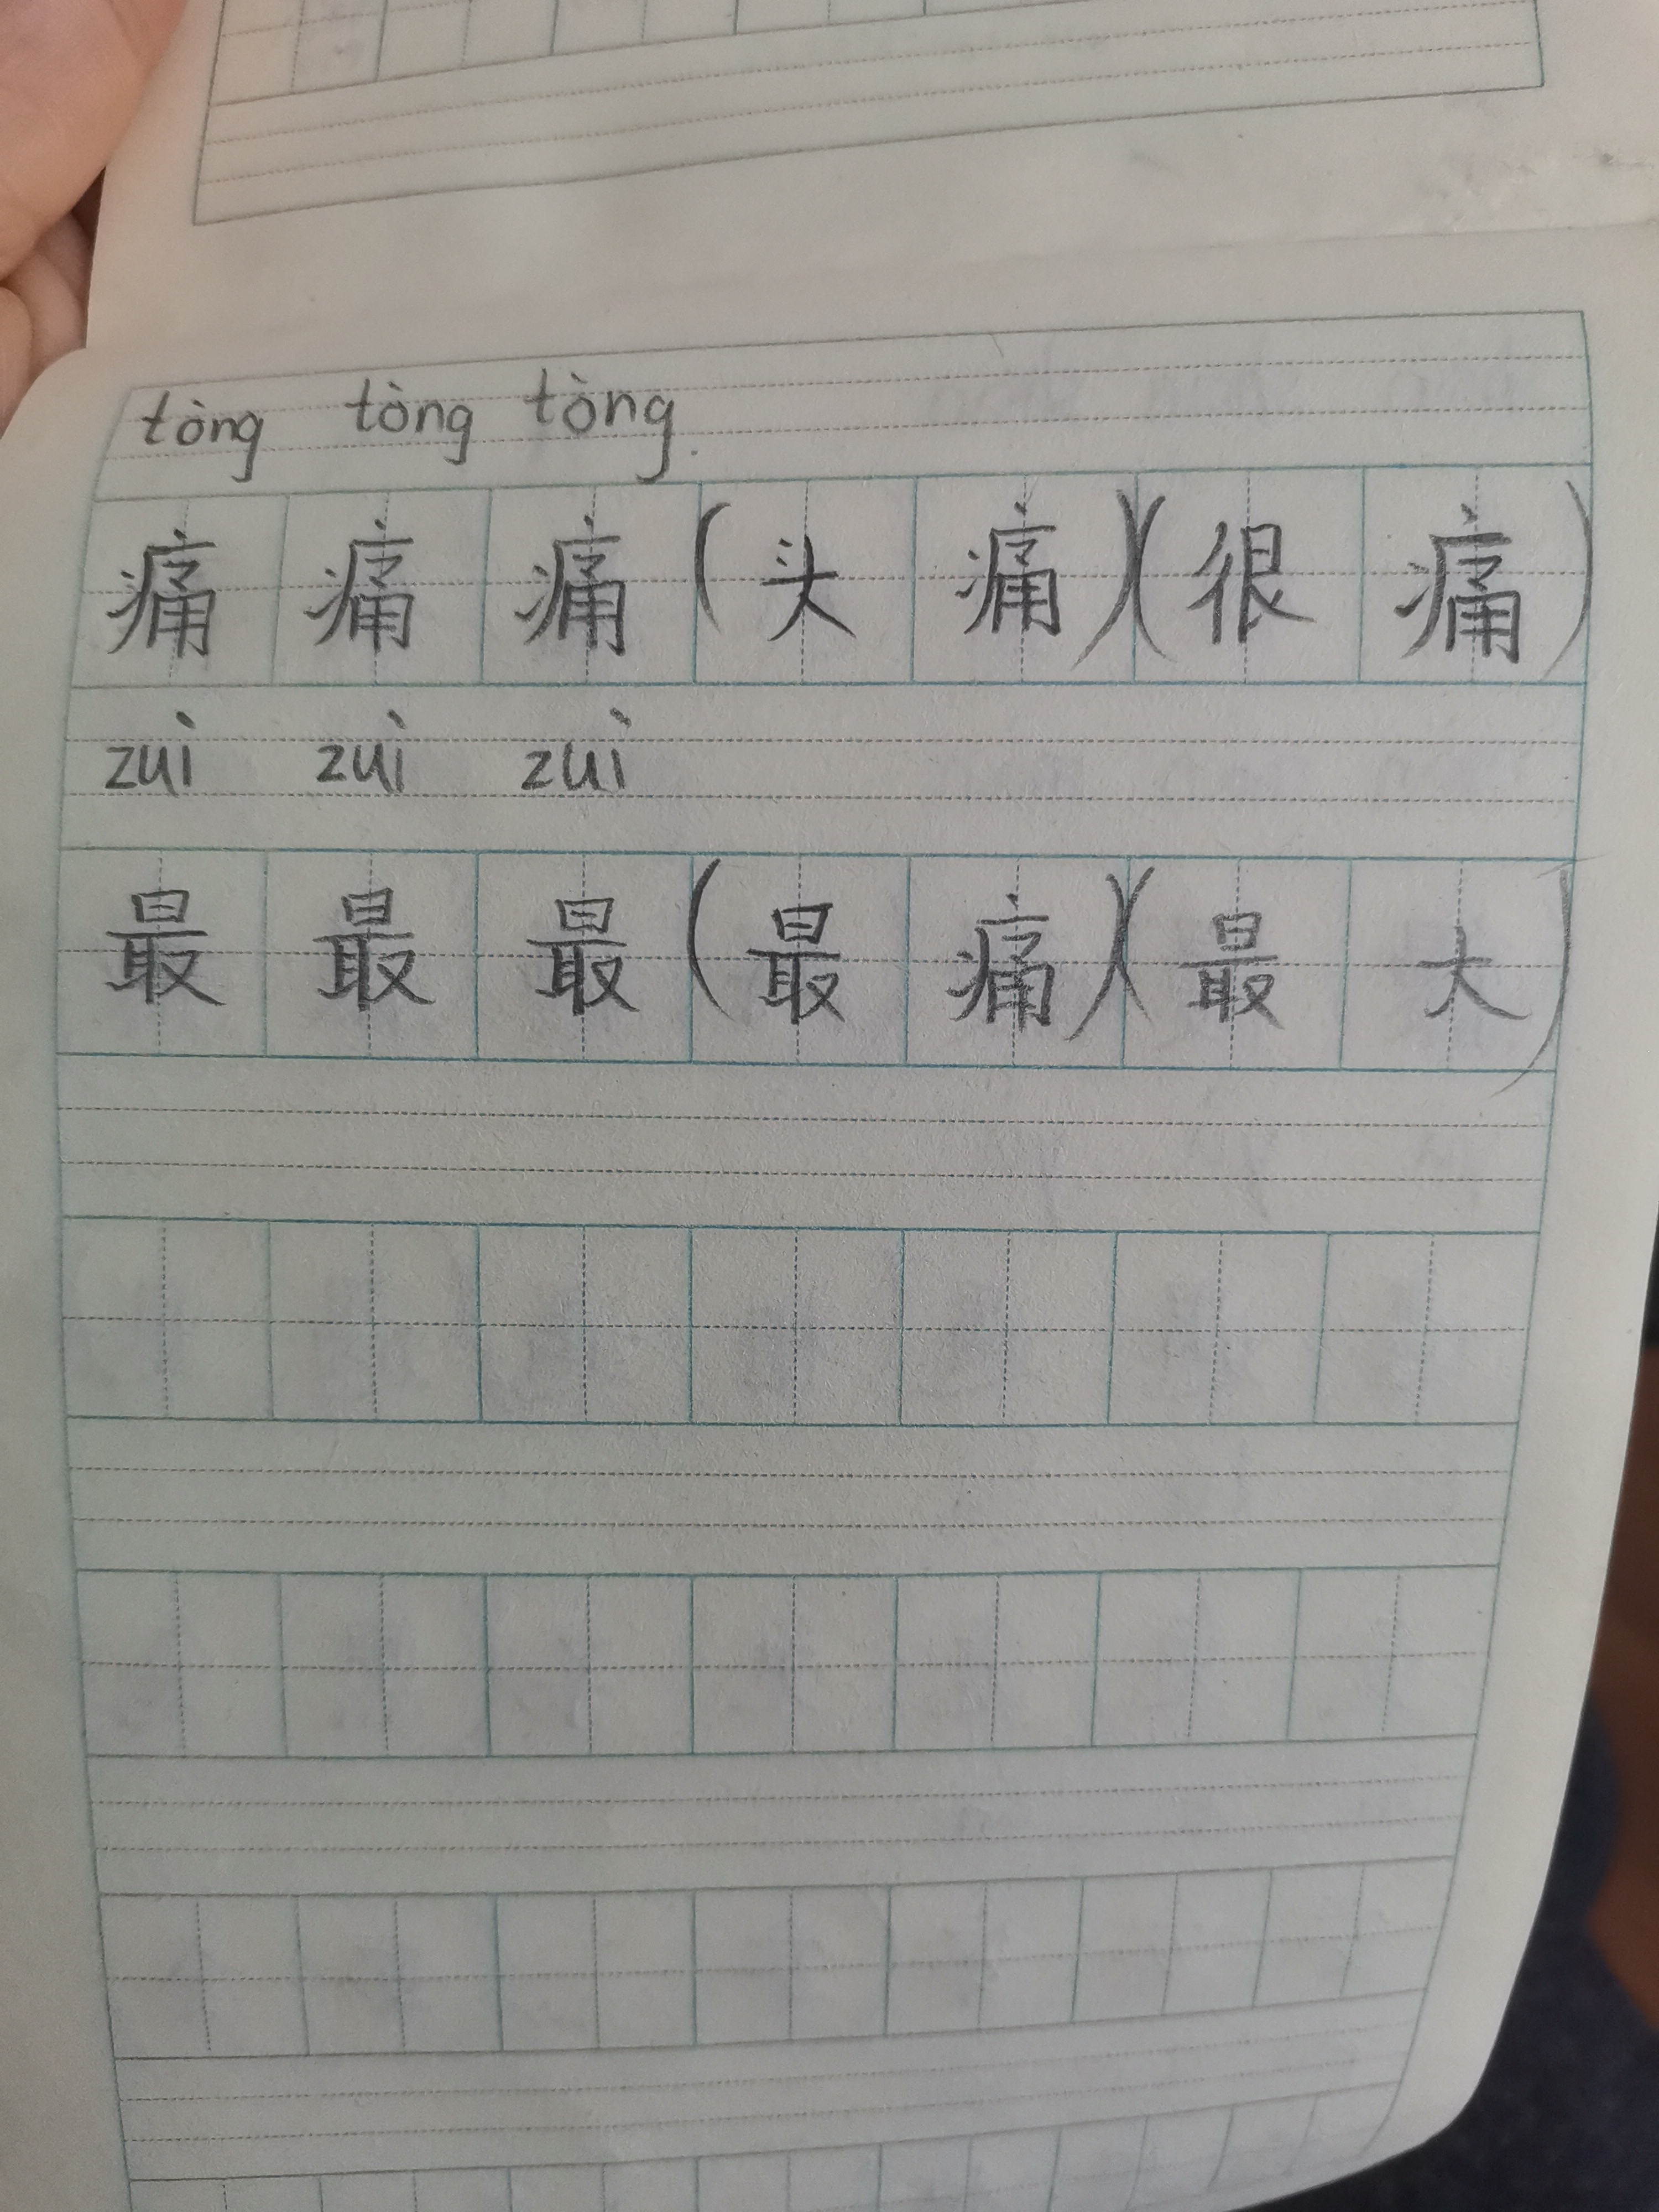 tòng tòng tòng
痛 痛 痛 (头 痛)(很 痛)
zuì zuì zuì
最 最 最 (最 痛)(最 大)